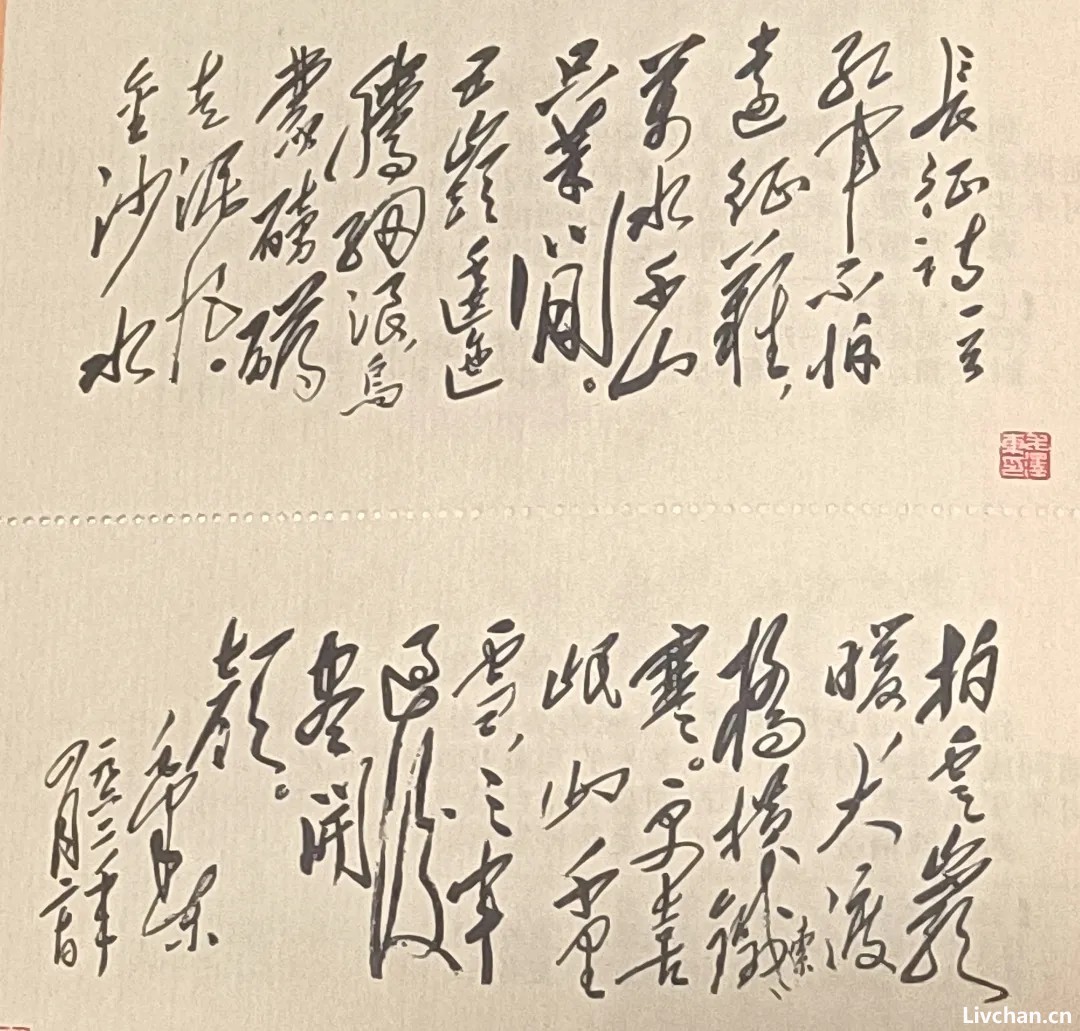 長征詩一首
紅軍不怕
遠征難,
萬水千山
只等閒。
五嶺逶迤
騰細浪,烏
蒙磅礴
走泥丸。
金沙水
毛澤東印
拍雲巖
暖大渡
橋橫鐵索
寒。更喜
岷山千里
雪,三軍
過後
盡開
顏。
毛澤東
一九六二年
四月二十日
Livchan.cn